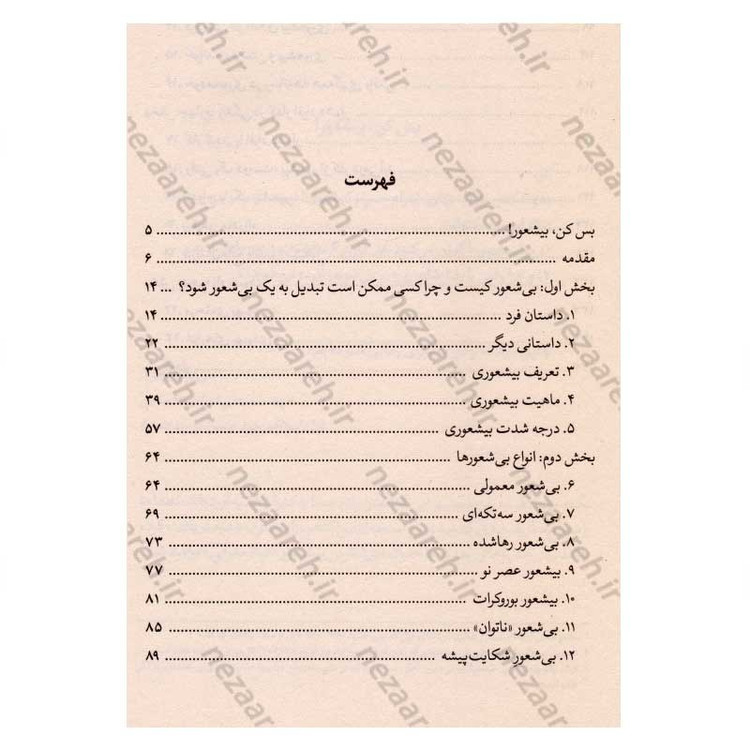 فهرست
بس کن، بیشعور! ... ۵
مقدمه ... ۶
بخش اول: بی‌شعور کیست و چرا کسی ممکن است تبدیل به یک بی‌شعور شود؟ ... ۱۴
۱. داستان فرد ... ۱۴
۲. داستانی دیگر ... ۲۲
۳. تعریف بیشعوری ... ۳۱
۴. ماهیت بیشعوری ... ۳۹
۵. درجه شدت بیشعوری ... ۵۷
بخش دوم: انواع بی‌شعورها ... ۶۴
۶. بی‌شعور معمولی ... ۶۴
۷. بی‌شعور سه‌تکه‌ای ... ۶۹
۸. بی‌شعور رهاشده ... ۷۳
۹. بیشعور عصر نو ... ۷۷
۱۰. بیشعور بوروکرات ... ۸۱
۱۱. بی‌شعور «ناتوان» ... ۸۵
۱۲. بی‌شعورِ شکایت‌پیشه ... ۸۹
nezaareh.ir